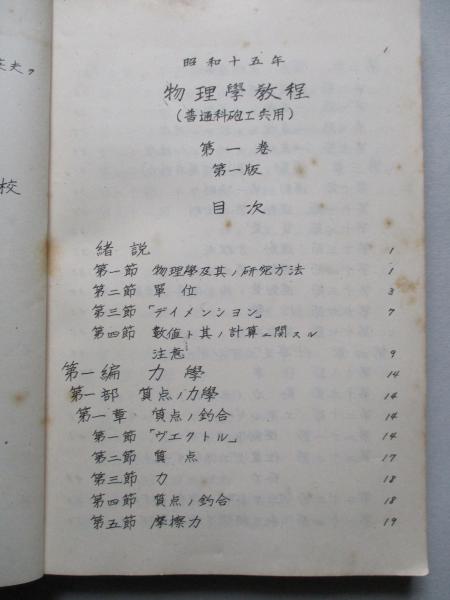 1
昭和十五年
物理學教程
(普通科砲工兵用)
第一卷
第一版
目次
緒説 1
第一節 物理學及其ノ研究方法 1
第二節 單位 3
第三節 「デイメンション」 7
第四節 數値ト其ノ計算ニ関スル
注意 9
第一編 力學 14
第一部 質点ノ力學 14
第一章 質点ノ釣合 14
第一節 「ヴエクトル」 14
第二節 質点 17
第三節 力 18
第四節 質点ノ釣合 18
第五節 摩擦力 19
校